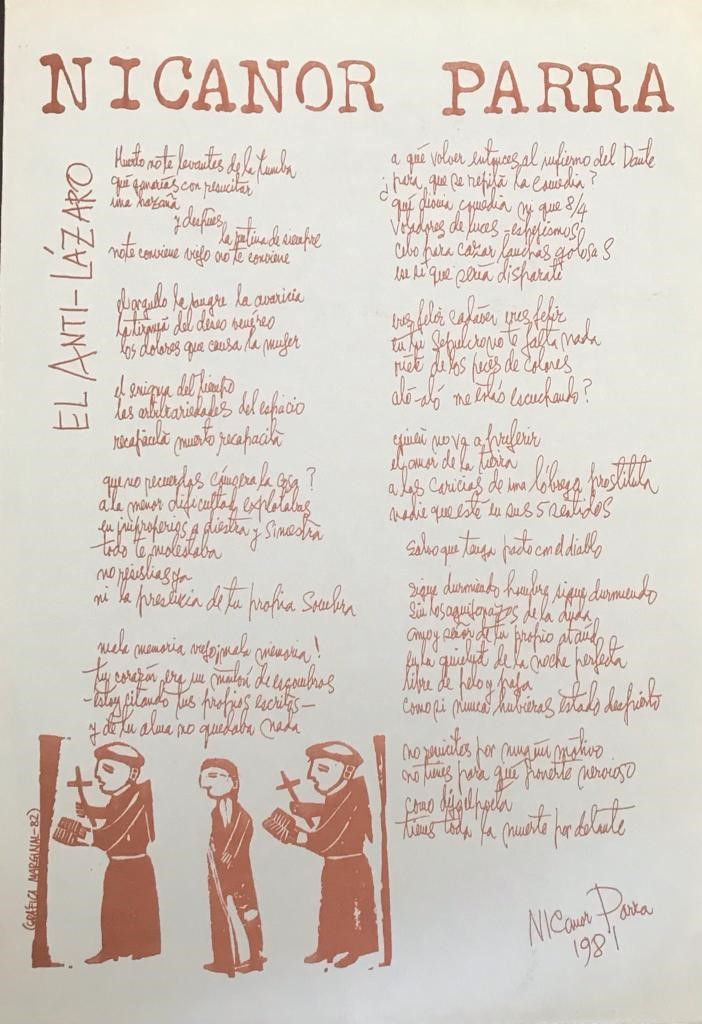 NICANOR PARRA
EL ANTI-LÁZARO
Muerto no te levantes de la tumba
qué ganarías con resucitar
una hazaña
y después
la rutina de siempre
no te conviene viejo no te conviene
el orgullo la sangre la avaricia
la tiranía del deseo venéreo
los dolores que causa la mujer
el enigma del tiempo
las arbitrariedades del espacio
recapacita muerto recapacita
que no recuerdas cómo era la cosa?
a la menor dificultad explotabas
en improperios a diestra y siniestra
todo te molestaba
no resistías ya
ni la presencia de tu propia sombra
mala memoria viejo ¡mala memoria!
tu corazón era un montón de escombros
-estoy citando tus propios escritos-
y de tu alma no quedaba nada
a qué volver entonces al infierno del Dante
¿para que se repita la comedia?
qué divina comedia ni que 8/4
voladores de luces - espejismos
cebo para cazar lauchas golosas
ese sí que sería disparate
eres feliz cadáver eres feliz
en tu sepulcro no te falta nada
ríete de los peces de colores
aló-aló me estás escuchando?
quién no va a preferir
el amor de la tierra
a las caricias de una lóbrega prostituta
nadie que esté en sus 5 sentidos
salvo que tenga pacto con el diablo
sigue durmiendo hombre sigue durmiendo
sin los aguijonazos de la duda
amo y señor de tu propio ataúd
en la quietud de la noche perfecta
libre de pelo y paja
como si nunca hubieras estado despierto
no resucites por ningún motivo
no tienes para qué ponerte nervioso
como dijo el poeta
tienes toda la muerte por delante
Nicanor Parra
1981
(GRÁFICA MARGINAL-82)